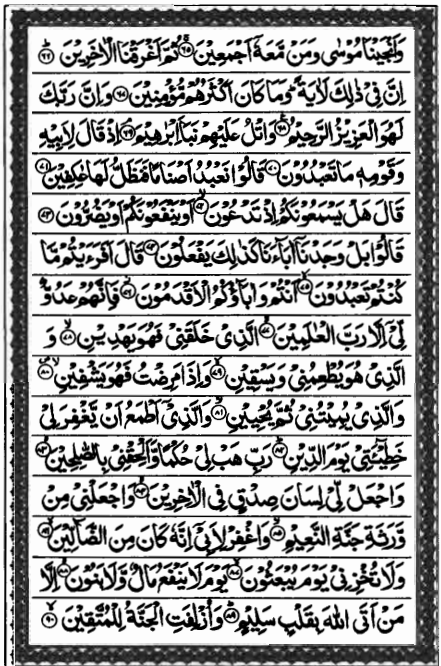 وَاَنۡجَيۡنَا مُوۡسٰى وَمَنۡ مَّعَهٗۤ اَجۡمَعِيۡنَ ۚ‏﴿۶۵﴾ ثُمَّ اَغۡرَقۡنَا الۡاٰخَرِيۡنَ ؕ‏﴿۶۶﴾
اِنَّ فِىۡ ذٰلِكَ لَاٰيَةً ؕ وَمَا كَانَ اَكۡثَرُهُمۡ مُّؤۡمِنِيۡنَ‏﴿۶۷﴾ وَاِنَّ رَبَّكَ
لَهُوَ الۡعَزِيۡزُ الرَّحِيۡمُ‏﴿۶۸﴾ وَاتۡلُ عَلَيۡهِمۡ نَبَاَ اِبۡرٰهِيۡمَ‌ۘ‏﴿۶۹﴾ اِذۡ قَالَ لِاَبِيۡهِ
وَقَوۡمِهٖ مَا تَعۡبُدُوۡنَ‏﴿۷۰﴾ قَالُوۡا نَعۡبُدُ اَصۡنَامًا فَنَظَلُّ لَهَا عٰكِفِيۡنَ‏﴿۷۱﴾
قَالَ هَلۡ يَسۡمَعُوۡنَكُمۡ اِذۡ تَدۡعُوۡنَۙ‏﴿۷۲﴾ اَوۡ يَنۡفَعُوۡنَكُمۡ اَوۡ يَضُرُّوۡنَ‏﴿۷۳﴾
قَالُوۡا بَلۡ وَجَدۡنَاۤ اٰبَآءَنَا كَذٰلِكَ يَفۡعَلُوۡنَ‏﴿۷۴﴾ قَالَ اَفَرَءَيۡتُمۡ مَّا
كُنۡتُمۡ تَعۡبُدُوۡنَۙ‏﴿۷۵﴾ اَنۡتُمۡ وَاٰبَآؤُكُمُ الۡاَقۡدَمُوۡنَ ۖ‏﴿۷۶﴾ فَاِنَّهُمۡ عَدُوٌّ
لِّىۡۤ اِلَّا رَبَّ الۡعٰلَمِيۡنَۙ‏﴿۷۷﴾ الَّذِىۡ خَلَقَنِىۡ فَهُوَ يَهۡدِيۡنِۙ‏﴿۷۸﴾ وَ
الَّذِىۡ هُوَ يُطۡعِمُنِىۡ وَيَسۡقِيۡنِۙ‏﴿۷۹﴾ وَاِذَا مَرِضۡتُ فَهُوَ يَشۡفِيۡنِۙ‏﴿۸۰﴾
وَالَّذِىۡ يُمِيۡتُنِىۡ ثُمَّ يُحۡيِيۡنِۙ‏﴿۸۱﴾ وَالَّذِىۡۤ اَطۡمَعُ اَنۡ يَّغۡفِرَ لِىۡ
خَطِیْٓئَتِىۡ يَوۡمَ الدِّيۡنِؕ‏﴿۸۲﴾ رَبِّ هَبۡ لِىۡ حُكۡمًا وَّاَلۡحِقۡنِىۡ بِالصّٰلِحِيۡنَۙ‏﴿۸۳﴾
وَاجۡعَلْ لِّىۡ لِسَانَ صِدۡقٍ فِى الۡاٰخِرِيۡنَۙ‏﴿۸۴﴾ وَاجۡعَلۡنِىۡ مِنۡ
وَّرَثَةِ جَنَّةِ النَّعِيۡمِۙ‏﴿۸۵﴾ وَاغۡفِرۡ لِاَبِىۡۤ اِنَّهٗ كَانَ مِنَ الضَّآلِّيۡنَۙ‏﴿۸۶﴾
وَلَا تُخۡزِنِىۡ يَوۡمَ يُبۡعَثُوۡنَۙ‏﴿۸۷﴾ يَوۡمَ لَا يَنۡفَعُ مَالٌ وَّلَا بَنُوۡنَۙ‏﴿۸۸﴾ اِلَّا
مَنۡ اَتَى اللّٰهَ بِقَلۡبٍ سَلِيۡمٍؕ‏﴿۸۹﴾ وَاُزۡلِفَتِ الۡجَنَّةُ لِلۡمُتَّقِيۡنَۙ‏﴿۹۰﴾